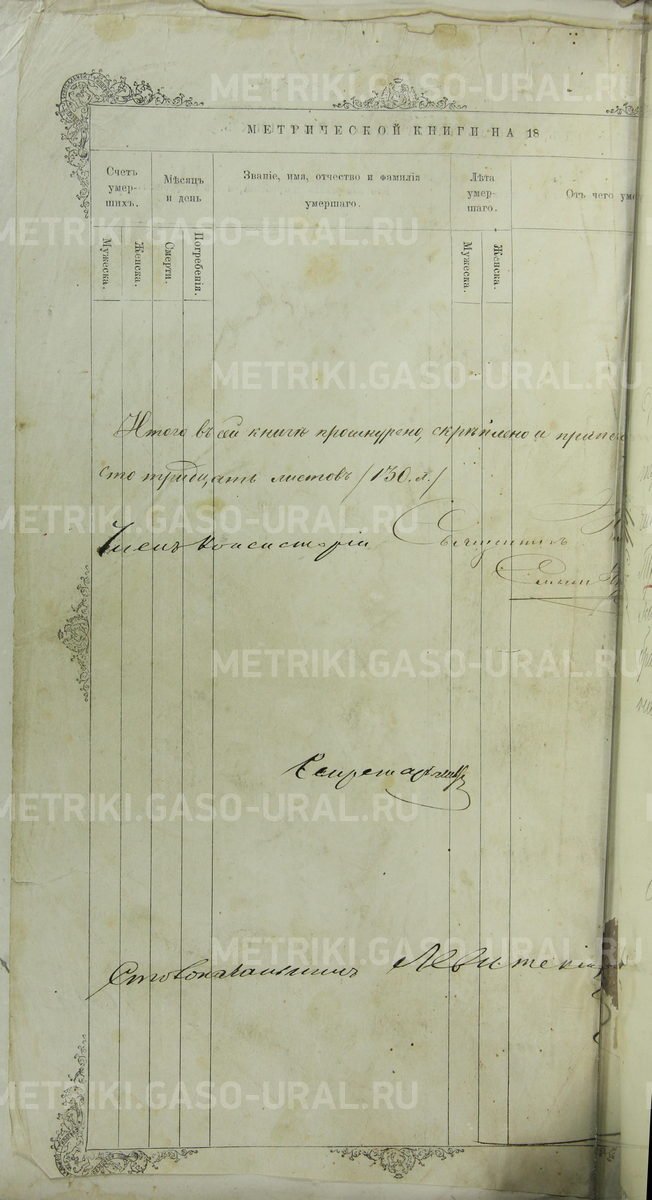 МЕТРИЧЕСКОЙ КНИГИ НА 18
Счетъ умер-шихъ.
Мѣсяцъ и день
Званіе, имя, отчество и фамилія умершаго.
Лѣта умер-шаго.
Отъ чего уме
Мужеска.
Женска.
Смерти.
Погребенія.
Мужеска.
Женска.
Итого въ сей книгѣ прошнурено, скрѣплено и припе
сто тридцать листовъ /130. л./
Членъ Консисторіи Священникъ
Секретарь
Столоначальникъ Левитскій
METRIKI.GASO-URAL.RU
METRIKI.GASO-URAL.RU
METRIKI.GASO-URAL.RU
METRIKI.GASO-URAL.RU
METRIKI.GASO-URAL.RU
METRIKI.GASO-URAL.RU
METRIKI.GASO-URAL.RU
METRIKI.GASO-URAL.RU